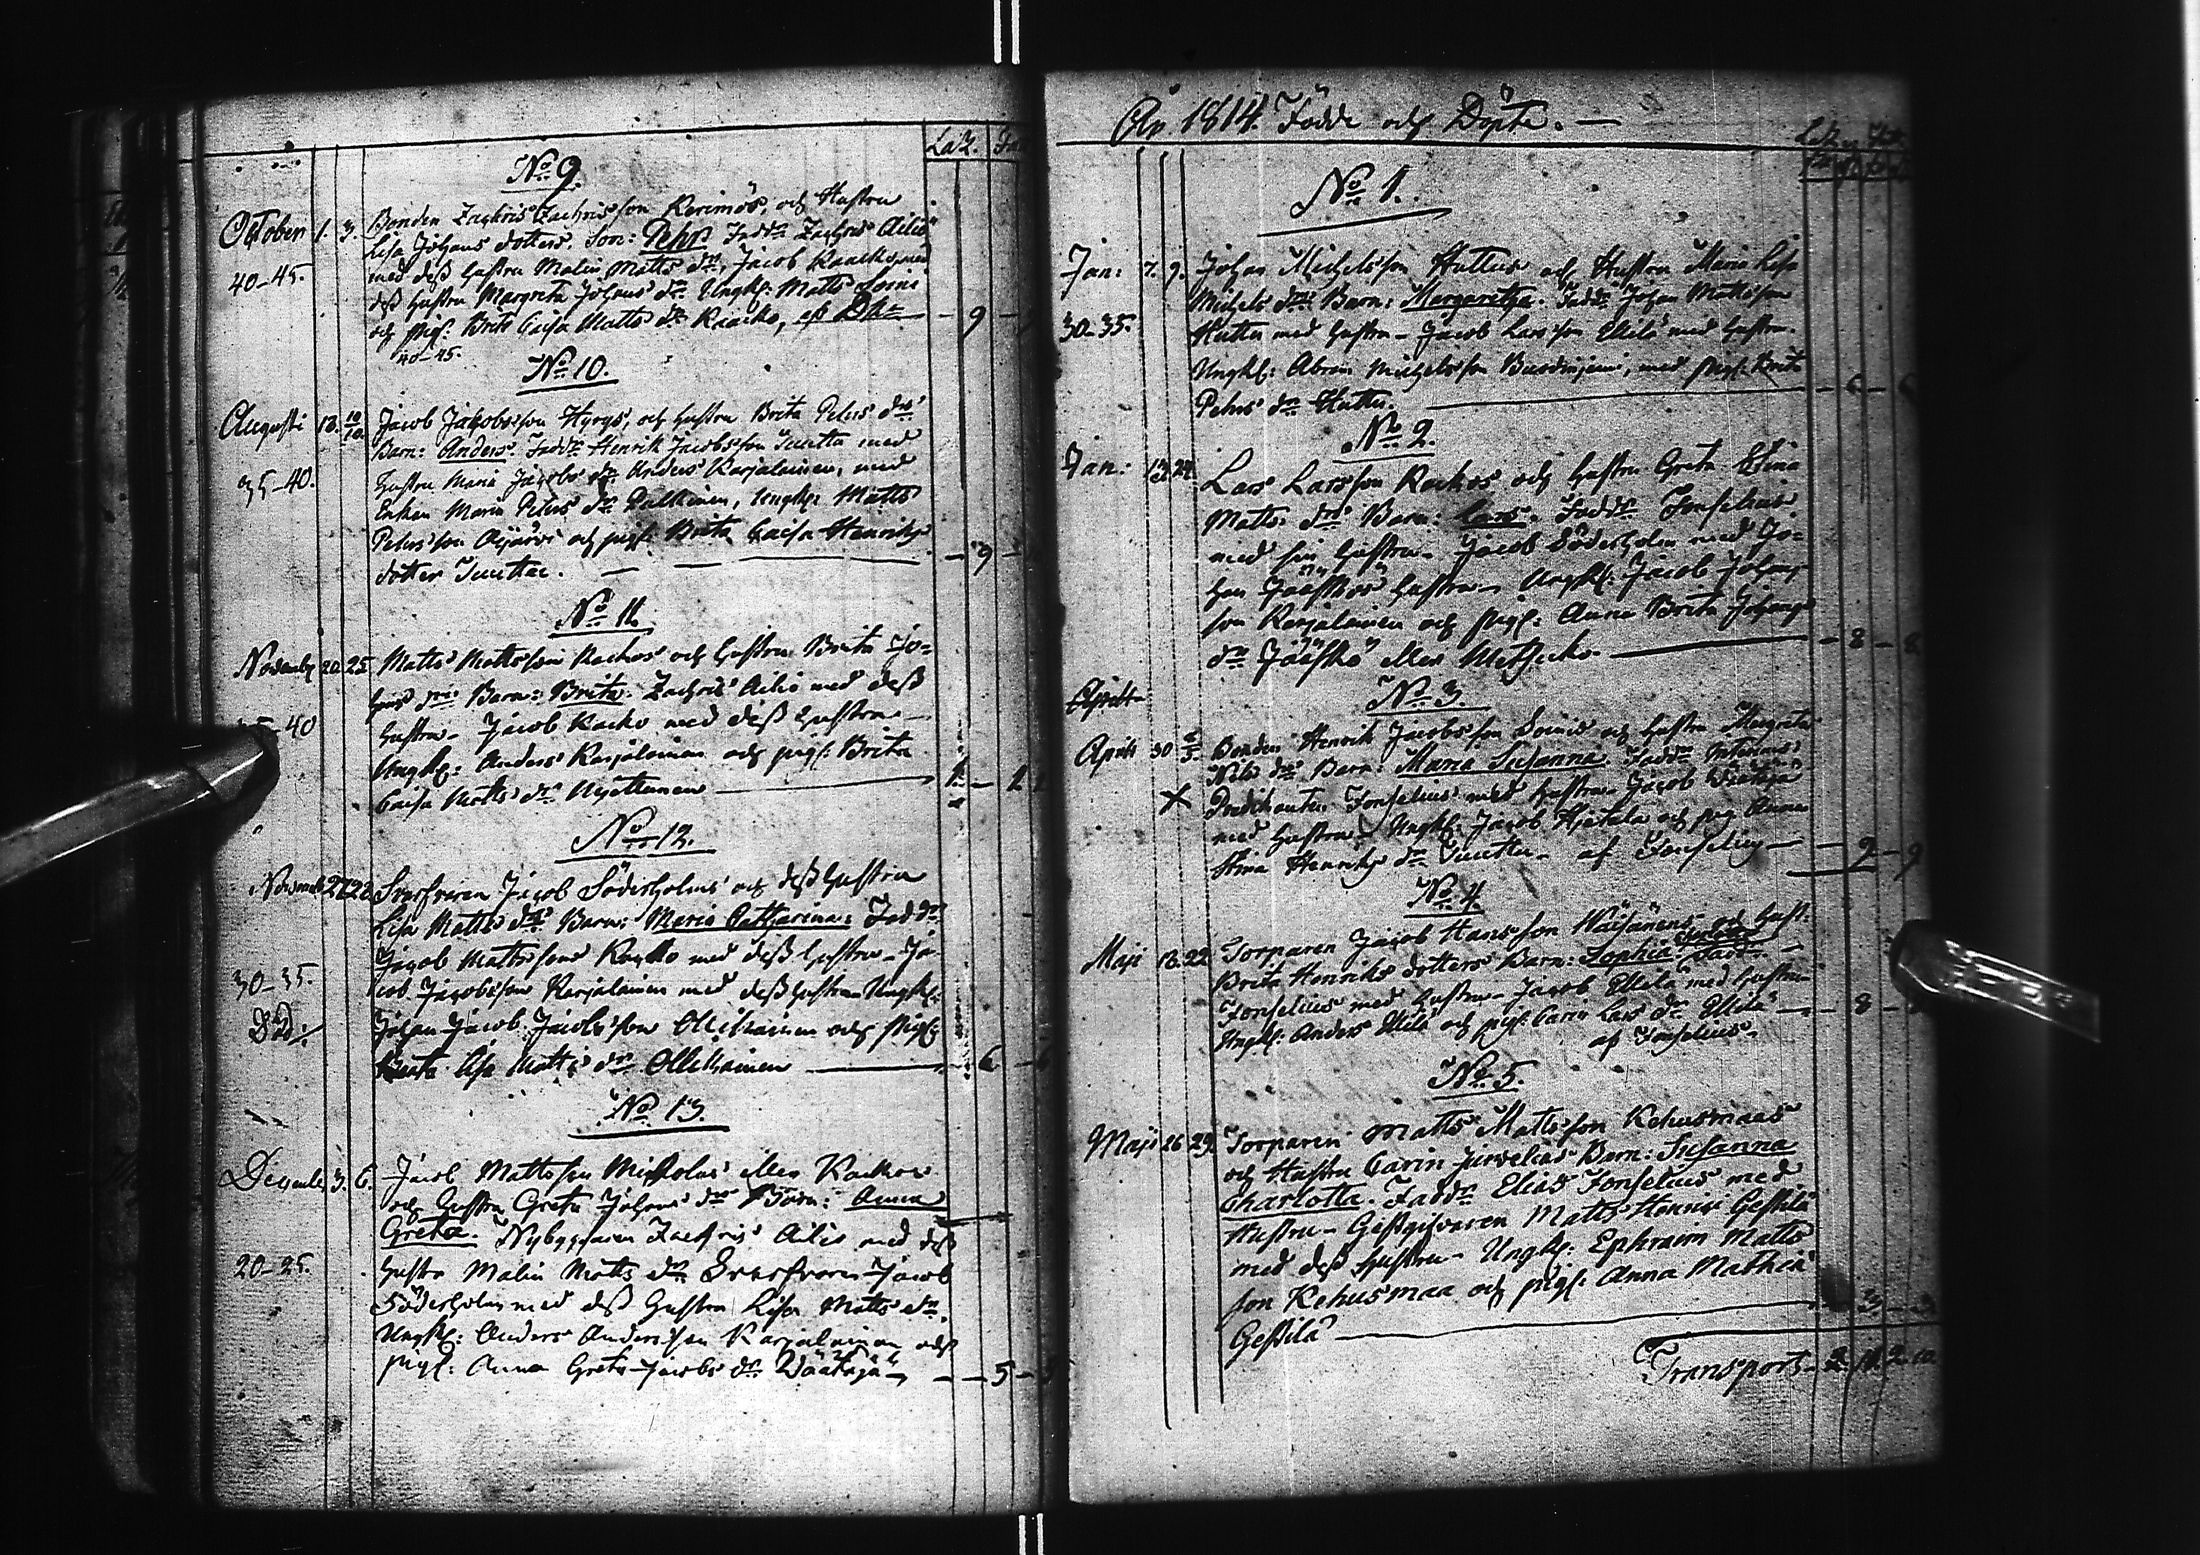 No 9.
October 1. 3. Bonden Zachris Zachrisson Kerimös, och Hustru
Lisa Johans dotters Son: Pehr Faddr Zachris Ailio
40-45. med dess hustru Malin Matts dr, Jacob Raacko med
dess hustru Margreta Johans dr Ungk: Matts Soini
och pig: Brita Caisa Matts dr Raacko, af - 9 -
40-45.
No 10.
Augusti 18. 10/10. Jacob Jacobsson Hyrys, och hustru Brita Pehrs drs
Barn: Anders. Faddr Henrik Jacobsson Juutta med
35-40. hustru Maria Jacobs dr Anders Karjalainen, med
Enkan Maria Pehrs dr Pulkkinen, Ungk: Matts
Pehrsson Äijärvi och pig: Brita Caisa Henriks
dotter Juuttae. - 9 -
No 11.
Novemb 20. 25 Matts Mattsson Rackos och hustru Brita Jo-
hans drs Barn: Brita. Zachris Ailio med dess
-40 hustru - Jacob Racko med dess hustru -
Ungk: Anders Karjalainen och pig: Brita
Caisa Matts dr
No 12.
Novemb 27 28 Svarfvaren Jacob Söderholms och dess hustru
Lisa Matts drs Barn: Maria Catharina: Faddr
Jacob Mattssons med dess hustru - Ja-
30-35. cob Jacobsson Karjalainen med dess hustru Ungk:
Johan Jacob Jacobsson Ollikainen och Pig:
Lisa Matts dr Ollikainen - 6 - 6
No 13.
Decemb. 3. 6. Jacob Mattsson eller Rackos
och hustru Greta Johans drs Barn: Anna
Greta. Nybyggaren Zachris Ailio med dess
20-25. hustru Malin Matts dr Svarfvaren Jacob
Söderholm med dess hustru Lisa Matts dr.
Ungk: Anders Andersson Karjalainen och
pig: Anna Greta Jacobs dr Wäätäjä - - 5 -
År 1814. Födde och Döpte. -
No 1.
Jan: 7. 9. Johan Michelsson Huttus och Hustru Maria Lisa
Michels drs Barn: Margaretha. Faddr Johan Mattsson
30-35. Huttu med hustru - Jacob Larsson Ellilä med hustru.
Ungk: Abram Michelsson, med pig: Brita
Pehrs dr Huttu. - 6 - 6
No 2.
Jan: 24. Lars Larsson Rackos och hustru Greta Stina
Matts drs Barn: Lars. Faddr Fonselius
med sin hustru - Jacob Söderholm med Jo-
han Jääskös hustru - Ungk: Jacob Johans-
son Karjalainen och pig: Anna Brita Johans
dr Jääskö eller - 8 - 8.
No 3.
Aprill
April 30 Bonden Henrik Jacobsson Soinis och hustru Margreta
Nils drs Barn: Maria Susanna Faddr
X Fonselius med hustru - Jacob Wäätäjä
med hustru - Ungk: Jacob och pig Anna
Stina Henriks dr Juutta - af Fonselius - - 9 - 9
No 4.
Maji 18. 22 Torparen Jacob Hansson Wäisänens och hust:
Brita Henriks dotters Barn: Sophia
Fonselius med hustru - Jacob Ellilä med hustru
Ungk: Anders Ellilä och pig: Carin Lars dr Ellilä - - 8 -
af Fonselius.
No 5.
Maji 26 29. Torparen Matts Mattsson Kehusmaas
och Hustru Carin Jurvelius Barn: Susanna
Charlotta. Faddr Elias Fonselius med
Hustru - Gästgifvaren Matts Henric Gestilä
med dess hustru - Ungk: Ephraim Matts
son Kehusmaa och pig: Anna Mathia
Gestilä -
Transport -